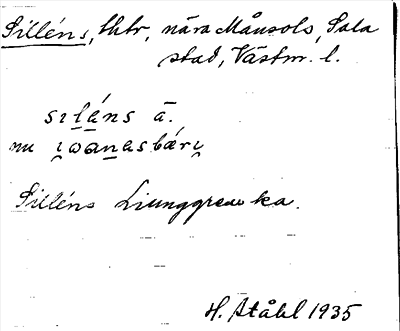 Silléns, lhtr, nära Månsols, Sala
stad, Västm. l.
siléns ä.
nu i woanasbäri
Silléns Ljunggrenska.
H. Ståhl 1935